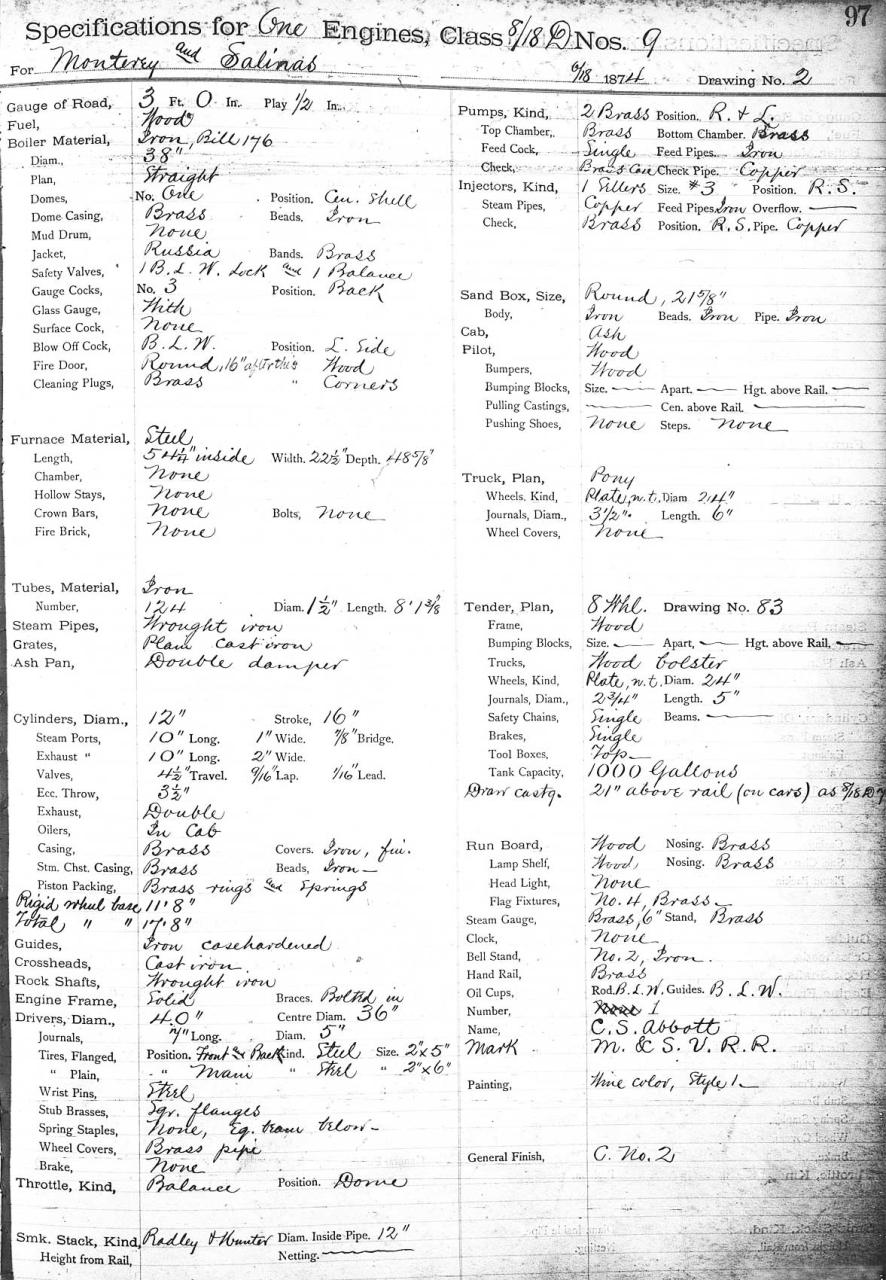 97
Specifications for One Engines, Class 8/18 D Nos. 9
For Monterey and Salinas 6/18 1874 Drawing No. 2
Gauge of Road, 3 Ft. 0 In. Play 1/2 In.
Fuel, Wood
Boiler Material, Iron, Bill 176
Diam., 38"
Plan, Straight
Domes, No. One Position. Cen. Shell
Dome Casing, Brass Beads, Iron
Mud Drum, None
Jacket, Russia Bands. Brass
Safety Valves, 1 B. L. W. Lock and 1 Balance
Gauge Cocks, No. 3 Position. Back
Glass Gauge, With
Surface Cock, None
Blow Off Cock, B. L. W. Position. L. Side
Fire Door, Round, 16" Wood
Cleaning Plugs, Brass " Corners
Furnace Material, Steel
Length, 54 1/4" inside Width. 22 1/2" Depth. 48 5/8"
Chamber, None
Hollow Stays, None
Crown Bars, None Bolts, None
Fire Brick, None
Tubes, Material, Iron
Number, 124 Diam. 1 1/2" Length. 8' 1 3/8"
Steam Pipes, Wrought iron
Grates, Plain cast iron
Ash Pan, Double damper
Cylinders, Diam., 12" Stroke, 16"
Steam Ports, 10" Long. 1" Wide. 7/8" Bridge.
Exhaust " 10" Long. 2" Wide.
Valves, 4 1/2" Travel. 9/16" Lap. 1/16" Lead.
Ecc. Throw, 3 1/2"
Exhaust, Double
Oilers, In Cab
Casing, Brass Covers. Iron, fin.
Stm. Chst. Casing, Brass Beads, Iron
Piston Packing, Brass rings and Springs
Rigid wheel base 11' 8"
Total " " 17' 8"
Guides, Iron casehardened
Crossheads, Cast iron
Rock Shafts, Wrought iron
Engine Frame, Solid Braces. Bolted in
Drivers, Diam., 40" Centre Diam. 36"
Journals, 7" Long. Diam. 5"
Tires, Flanged, Position. Front & Back Kind. Steel Size. 2" x 5"
" Plain, " Main " Steel " 2" x 6"
Wrist Pins, Steel
Stub Brasses, Sqr. flanges
Spring Staples, None, Eq. beam below
Wheel Covers, Brass pipe
Brake, None
Throttle, Kind, Balance Position. Dome
Smk. Stack, Kind, Radley & Hunter Diam. Inside Pipe. 12"
Height from Rail, Netting.
Pumps, Kind, 2 Brass Position. R. & L.
Top Chamber, Brass Bottom Chamber. Brass
Feed Cock, Single Feed Pipes. Iron
Check, Brass Case Check Pipe. Copper
Injectors, Kind, 1 Sellers Size. #3 Position. R. S.
Steam Pipes, Copper Feed Pipes, Iron Overflow.
Check, Brass Position. R. S. Pipe. Copper
Sand Box, Size, Round, 21 5/8"
Body, Iron Beads. Iron Pipe. Iron
Cab, Ash
Pilot, Wood
Bumpers, Wood
Bumping Blocks, Size. Apart. Hgt. above Rail.
Pulling Castings, Cen. above Rail.
Pushing Shoes, None Steps. None
Truck, Plan, Pony
Wheels, Kind, Plate, w. t. Diam 24"
Journals, Diam., 3 1/2" Length. 6"
Wheel Covers, None
Tender, Plan, 8 Whl. Drawing No. 83
Frame, Wood
Bumping Blocks, Size. Apart, Hgt. above Rail,
Trucks, Wood bolster
Wheels, Kind, Plate, w. t. Diam. 24"
Journals, Diam., 2 3/4" Length. 5"
Safety Chains, Single Beams.
Brakes, Single
Tool Boxes, Top
Tank Capacity, 1000 Gallons
Draw castg. 21" above rail (on cars) as 8/18 D 7
Run Board, Wood Nosing. Brass
Lamp Shelf, Wood, Nosing. Brass
Head Light, None
Flag Fixtures, No. 4, Brass
Steam Gauge, Brass, 6" Stand, Brass
Clock, None
Bell Stand, No. 2, Iron.
Hand Rail, Brass
Oil Cups, Rod. B. L. W. Guides. B. L. W.
Number, None 1
Name, C. S. Abbott
Mark M. & S. V. R. R.
Painting, Wine color, Style 1
General Finish, C. No. 2